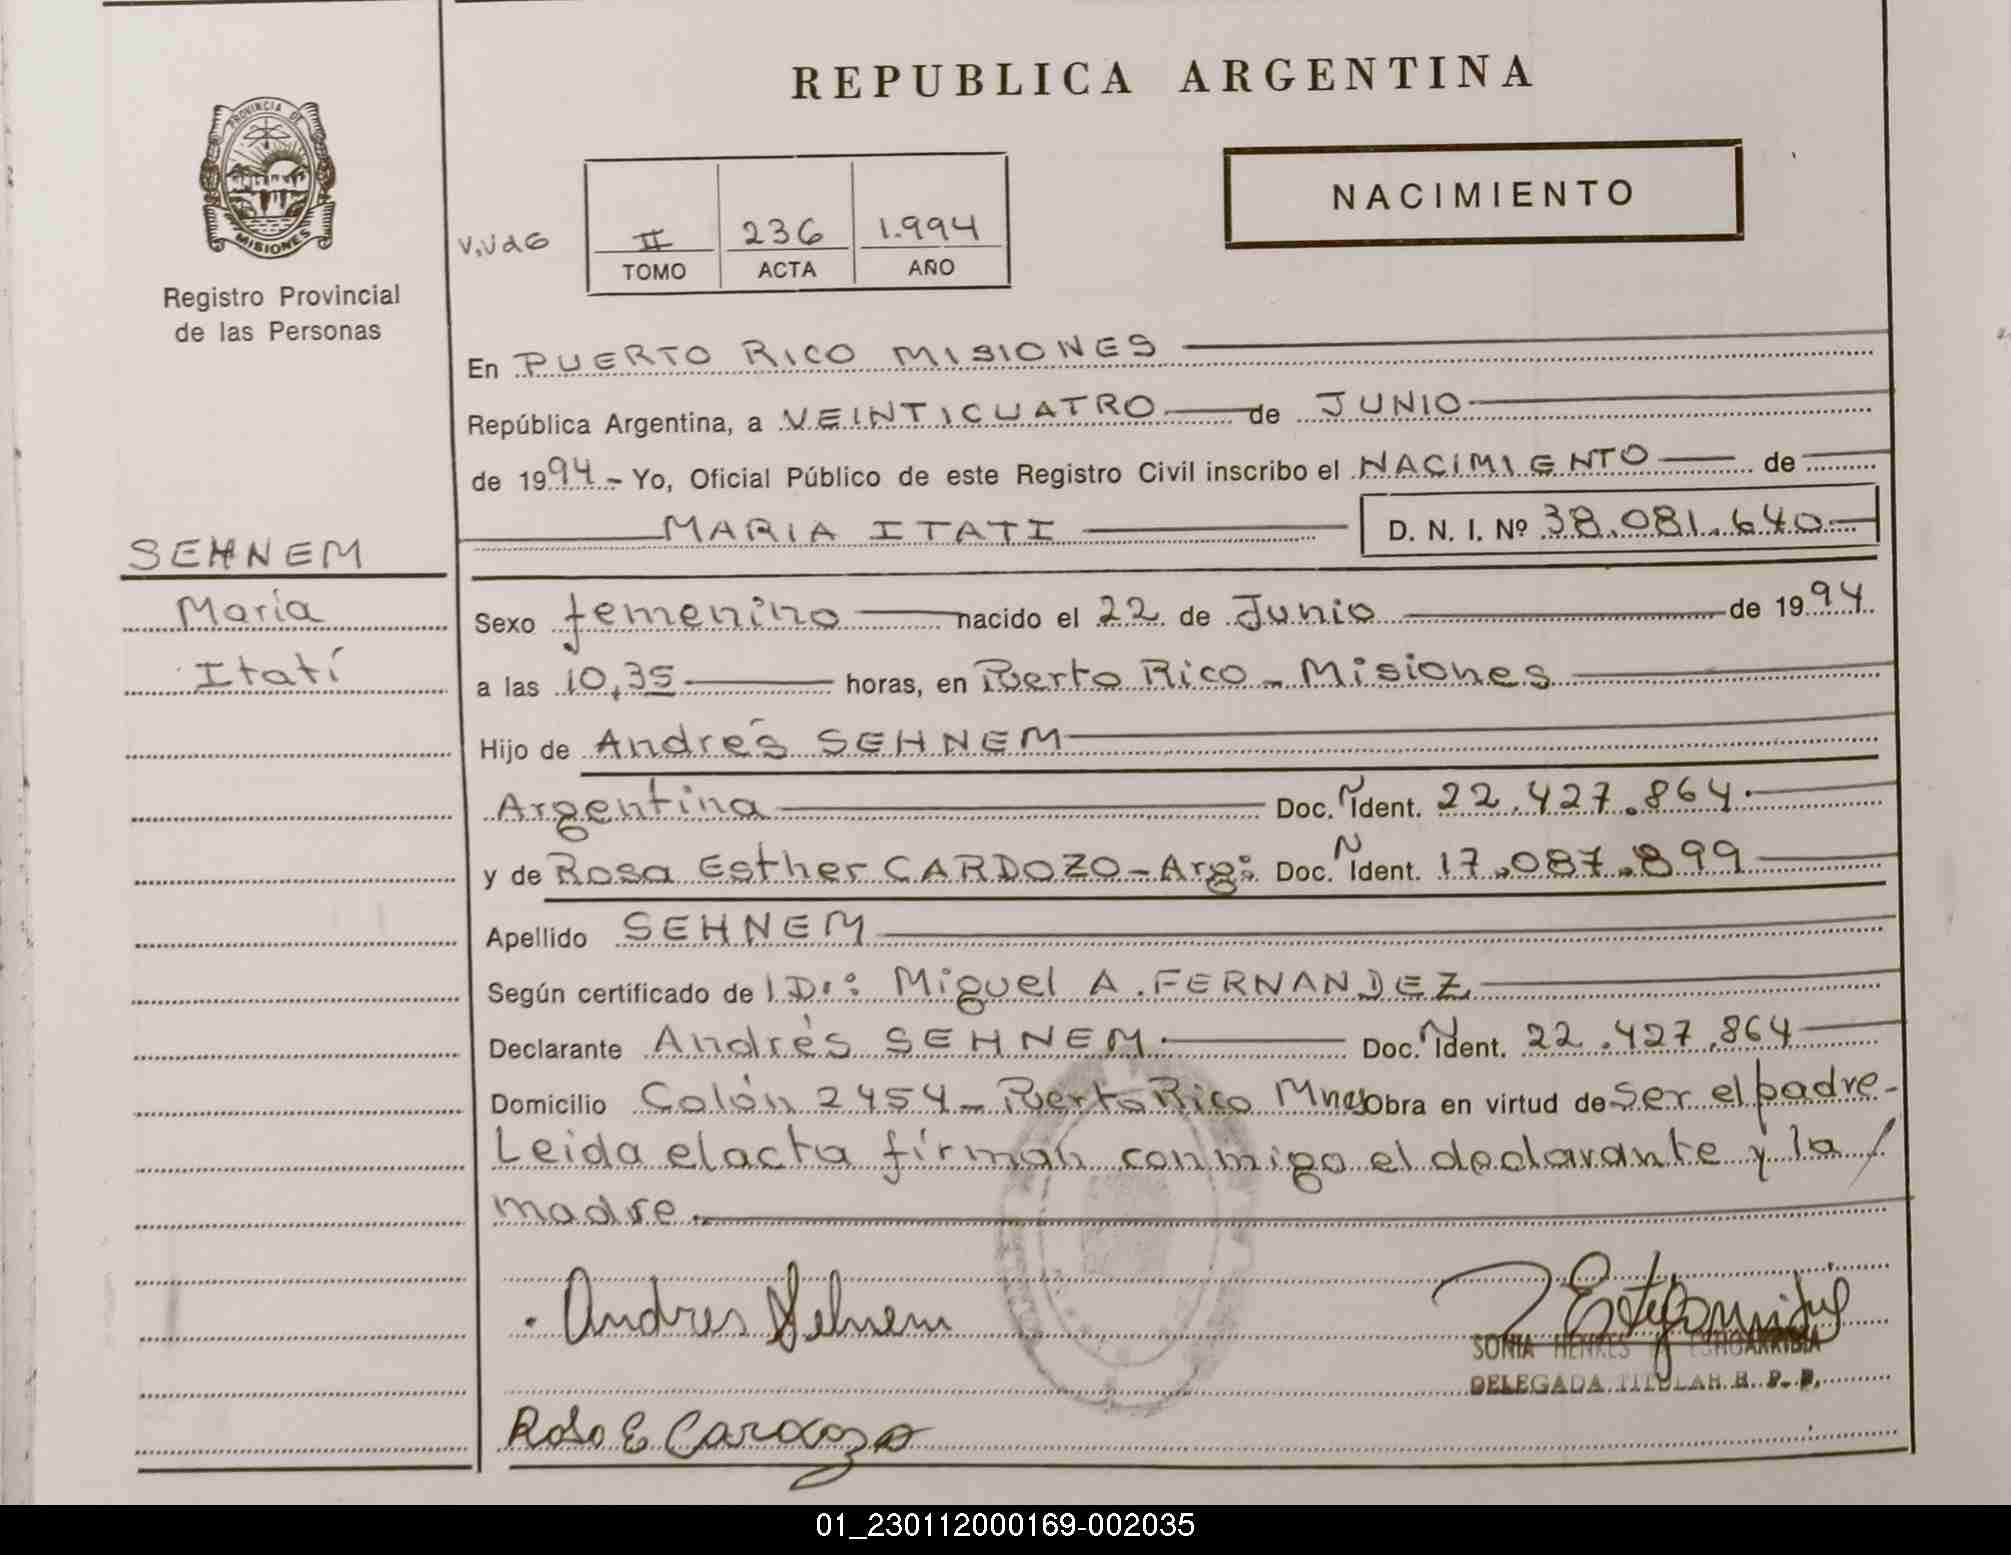 REPUBLICA ARGENTINA
PROVINCIA DE
MISIONES
Registro Provincial
de las Personas
NACIMIENTO
II 236 1.994
TOMO ACTA AÑO
En PUERTO RICO MISIONES
República Argentina, a VEINTICUATRO de JUNIO
de 1994.- Yo, Oficial Público de este Registro Civil inscribo el NACIMIENTO de
MARIA ITATI D. N. I. Nº 38.081.640
SEHNEM
María
Itatí
Sexo femenino nacido el 22 de Junio de 1994.
a las 10,35 horas, en Puerto Rico - Misiones
Hijo de Andrés SEHNEM
Argentina Doc. N Ident. 22.427.864.
y de Rosa Esther CARDOZO - Arg: Doc. N Ident. 17.087.899
Apellido SEHNEM
Según certificado de Dr: Miguel A. FERNANDEZ
Declarante Andrés SEHNEM. Doc. N Ident. 22.427.864
Domicilio Colón 2454 - Puerto Rico Mnes Obra en virtud de ser el padre.-
Leida el acta firman conmigo el declarante y la /
madre.
Andres Sehnem
SONIA HENKES
DELEGADA TITULAR R. P. P.
Rosa E Cardozo
01_230112000169-002035